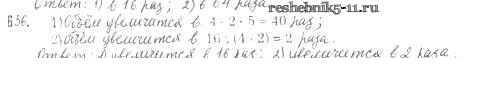 Ответ: 1) в 16 раз; 2) в 64 раза
reshebnik11.ru
636. 1) Объём увеличится в 4 · 2 · 5 = 40 раз;
2) Объём увеличится в 16 : (4 · 2) = 2 раза.
Ответ: 1) увеличится в 16 раз; 2) увеличится в 2 раза.